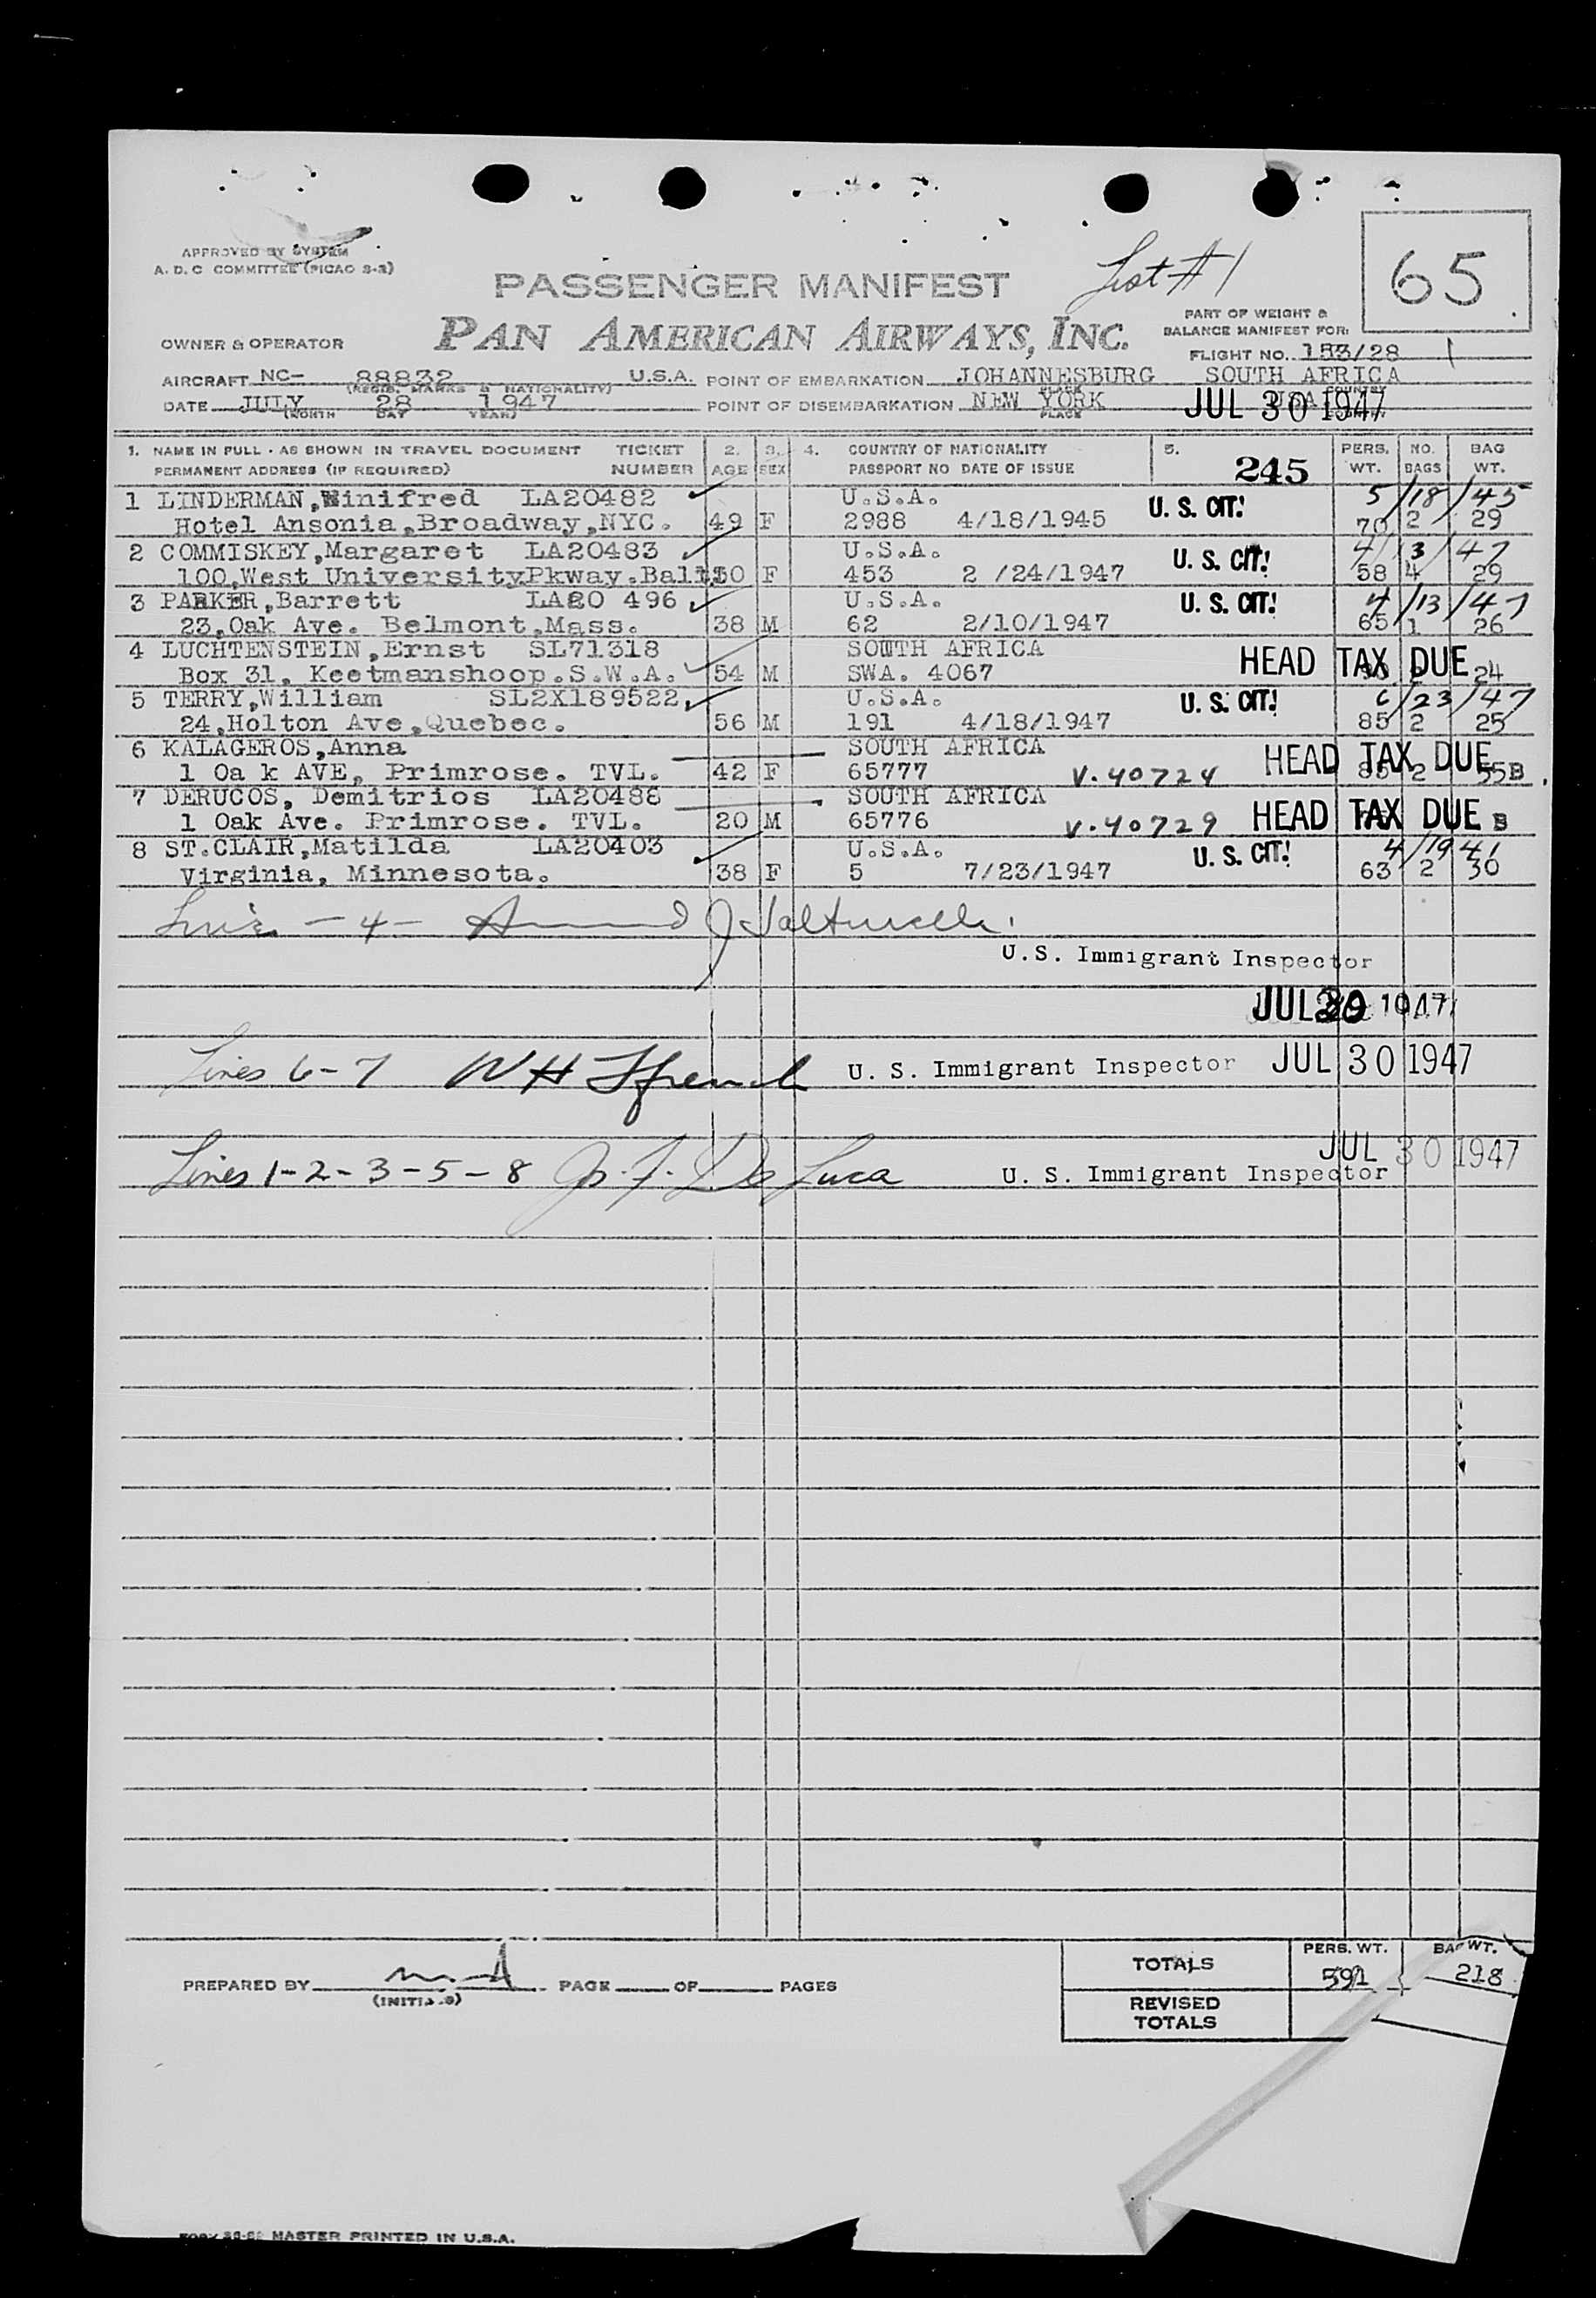 APPROVED BY SYSTEM
A. D. C COMMITTEE (PICAO S-3)
PASSENGER MANIFEST
List # 1
65
PAN AMERICAN AIRWAYS, INC.
PART OF WEIGHT &
BALANCE MANIFEST FOR:
OWNER & OPERATOR
FLIGHT NO. 153/28 1
AIRCRAFT NC- 88832 U.S.A. POINT OF EMBARKATION JOHANNESBURG SOUTH AFRICA
(REGIS. MARKS & NATIONALITY) PLACE COUNTRY
DATE JULY 28 1947 POINT OF DISEMBARKATION NEW YORK USA JUL 30 1947
(MONTH DAY YEAR) PLACE
1. NAME IN FULL - AS SHOWN IN TRAVEL DOCUMENT TICKET 2. 3. 4. COUNTRY OF NATIONALITY 5. PERS. NO. BAG
PERMANENT ADDRESS (IF REQUIRED) NUMBER AGE SEX PASSPORT NO DATE OF ISSUE 245 WT. BAGS WT.
1 LINDERMAN,Winifred LA20482 U.S.A. U. S. CIT! 5/18/45
Hotel Ansonia,Broadway,NYC. 49 F 2988 4/18/1945 70 2 29
2 COMMISKEY,Margaret LA20483 U.S.A. U. S. CIT! 4/3/47
100,West UniversityPkway.Balt. 50 F 453 2 /24/1947 58 4 29
3 PARKER,Barrett LA20 496 U.S.A. U. S. CIT! 4/13/47
23,Oak Ave. Belmont,Mass. 38 M 62 2/10/1947 65 1 26
4 LUCHTENSTEIN,Ernst SL71318 SOUTH AFRICA HEAD TAX DUE
Box 31. Keetmanshoop.S.W.A. 54 M SWA. 4067 24
5 TERRY,William SL2X189522, U.S.A. U. S. CIT! 6/23/47
24,Holton Ave,Quebec. 56 M 191 4/18/1947 85 2 25
6 KALAGEROS,Anna SOUTH AFRICA HEAD TAX DUE
1 Oa k AVE, Primrose. TVL. 42 F 65777 V.40724 85 2 55B
7 DERUCOS, Demitrios LA20488 SOUTH AFRICA
1 Oak Ave. Primrose. TVL. 20 M 65776 V.40729 HEAD TAX DUE B
8 ST.CLAIR,Matilda LA20403 U.S.A. U. S. CIT! 4/19 41
Virginia, Minnesota. 38 F 5 7/23/1947 63 2 30
- 4 -
U.S. Immigrant Inspector
JUL 1947
Lines 6-7 W H U. S. Immigrant Inspector JUL 30 1947
JUL 30 1947
Lines 1-2-3-5-8 De Luca U. S. Immigrant Inspector
TOTALS PERS. WT. BAG WT.
591 218
PREPARED BY PAGE OF PAGES
(INITIALS)
REVISED
TOTALS
MASTER PRINTED IN U.S.A.